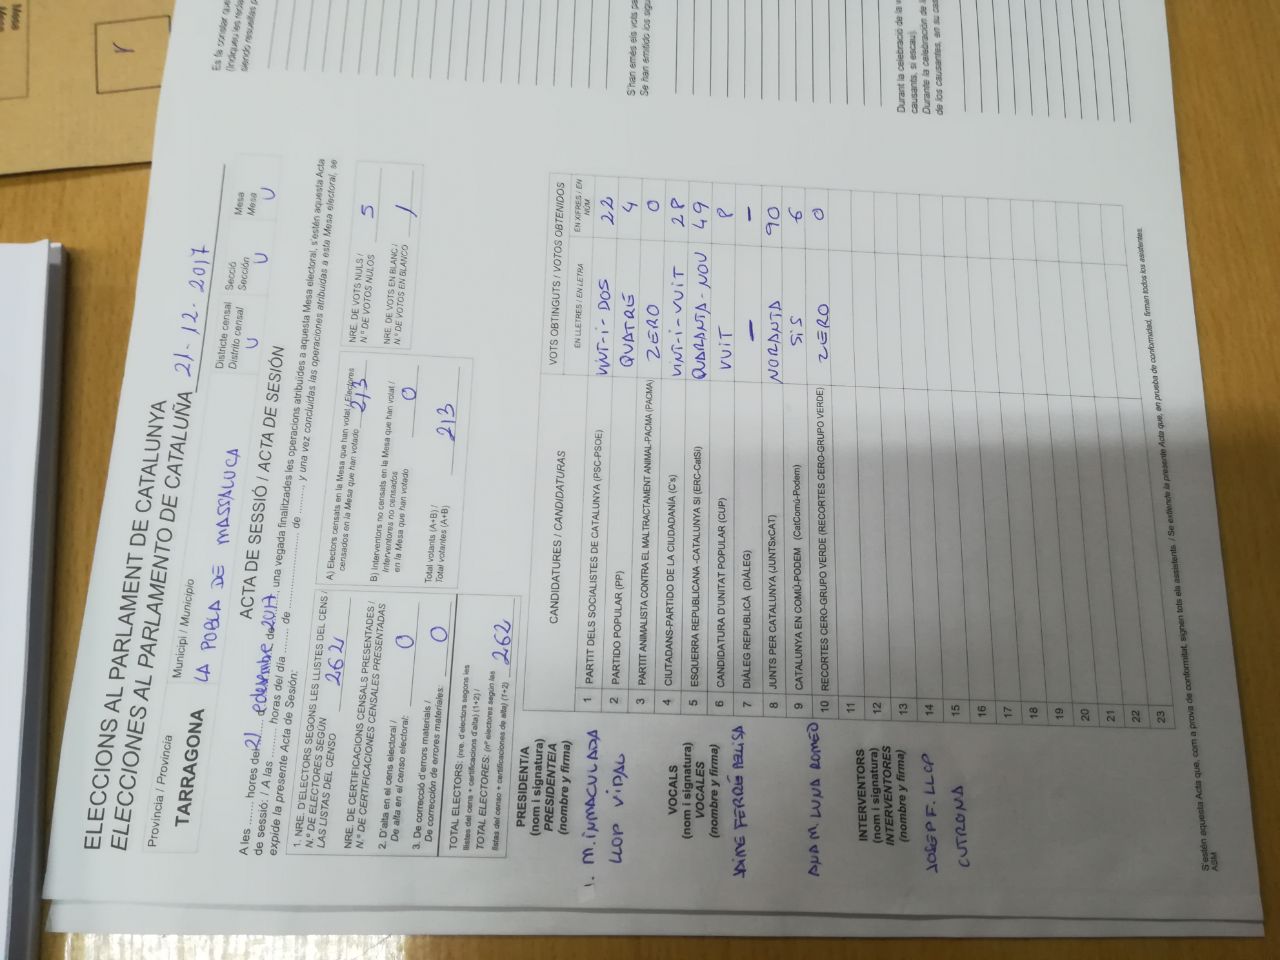 ELECCIONS AL PARLAMENT DE CATALUNYA
ELECCIONES AL PARLAMENTO DE CATALUÑA 21-12-2017
Província / Provincia
TARRAGONA
Municipi / Municipio
LA POBLA DE MASSALUCA
Districte censal
Distrito censal
U
Secció
Sección
U
Mesa
Mesa
U
ACTA DE SESSIÓ / ACTA DE SESIÓN
A les ........ hores del 21 .... de desembre de 2017, una vegada finalitzades les operacions atribuïdes a aquesta Mesa electoral, s'estén aquesta Acta
de sessió. / A las ........ horas del día ........ de ........................ de ........ y una vez concluidas las operaciones atribuidas a esta Mesa electoral, se
expide la presente Acta de Sesión:
1. NRE. D'ELECTORS SEGONS LES LLISTES DEL CENS /
N.º DE ELECTORES SEGÚN
LAS LISTAS DEL CENSO 262
NRE. DE CERTIFICACIONS CENSALS PRESENTADES /
N.º DE CERTIFICACIONES CENSALES PRESENTADAS
2. D'alta en el cens electoral /
De alta en el censo electoral: 0
3. De correcció d'errors materials /
De corrección de errores materiales: 0
TOTAL ELECTORS: (nre. d'electors segons les
llistes del cens + certificacions d'alta) (1+2) /
TOTAL ELECTORES: (nº electores según las
listas del censo + certificaciones de alta) (1+2) 262
A) Electors censats en la Mesa que han votat / Electores
censados en la Mesa que han votado 213
B) Interventors no censats en la Mesa que han votat /
Interventores no censados
en la Mesa que han votado 0
Total votants (A+B) /
Total votantes (A+B) 213
NRE. DE VOTS NULS /
N.º DE VOTOS NULOS 5
NRE. DE VOTS EN BLANC /
N.º DE VOTOS EN BLANCO 1
PRESIDENT/A
(nom i signatura)
PRESIDENTE/A
(nombre y firma)
1. M. INMACULADA
LLOP VIDAL
VOCALS
(nom i signatura)
VOCALES
(nombre y firma)
JAIME FERRÉ
ANA M. LUNA ROMEO
INTERVENTORS
(nom i signatura)
INTERVENTORES
(nombre y firma)
JOSEP F. LLOP
CUTRONA
CANDIDATURES / CANDIDATURAS
VOTS OBTINGUTS / VOTOS OBTENIDOS
EN LLETRES / EN LETRA
EN XIFRES / EN NÚM.
1 PARTIT DELS SOCIALISTES DE CATALUNYA (PSC-PSOE) VINT-I-DOS 22
2 PARTIDO POPULAR (PP) QUATRE 4
3 PARTIT ANIMALISTA CONTRA EL MALTRACTAMENT ANIMAL-PACMA (PACMA) ZERO 0
4 CIUTADANS-PARTIDO DE LA CIUDADANÍA (C's) VINT-I-VUIT 28
5 ESQUERRA REPUBLICANA -CATALUNYA SÍ (ERC-CatSí) QUARANTA-NOU 49
6 CANDIDATURA D'UNITAT POPULAR (CUP) VUIT 8
7 DIÀLEG REPUBLICÀ (DIÀLEG) — —
8 JUNTS PER CATALUNYA (JUNTSxCAT) NORANTA 90
9 CATALUNYA EN COMÚ-PODEM (CatComú-Podem) SIS 6
10 RECORTES CERO-GRUPO VERDE (RECORTES CERO-GRUPO VERDE) ZERO 0
11
12
13
14
15
16
17
18
19
20
21
22
23
S'estén aquesta Acta que, com a prova de conformitat, signen tots els assistents. / Se extiende la presente Acta que, en prueba de conformidad, firman todos los asistentes.
ASM
Es fa constar que
(Indiqueu les recla
siendo resueltas p
S'han emès els vots pa
Se han emitido los sigu
Durant la celebració de la v
causants, si escau)
Durante la celebración de l
de los causantes, en su cas
Mesa